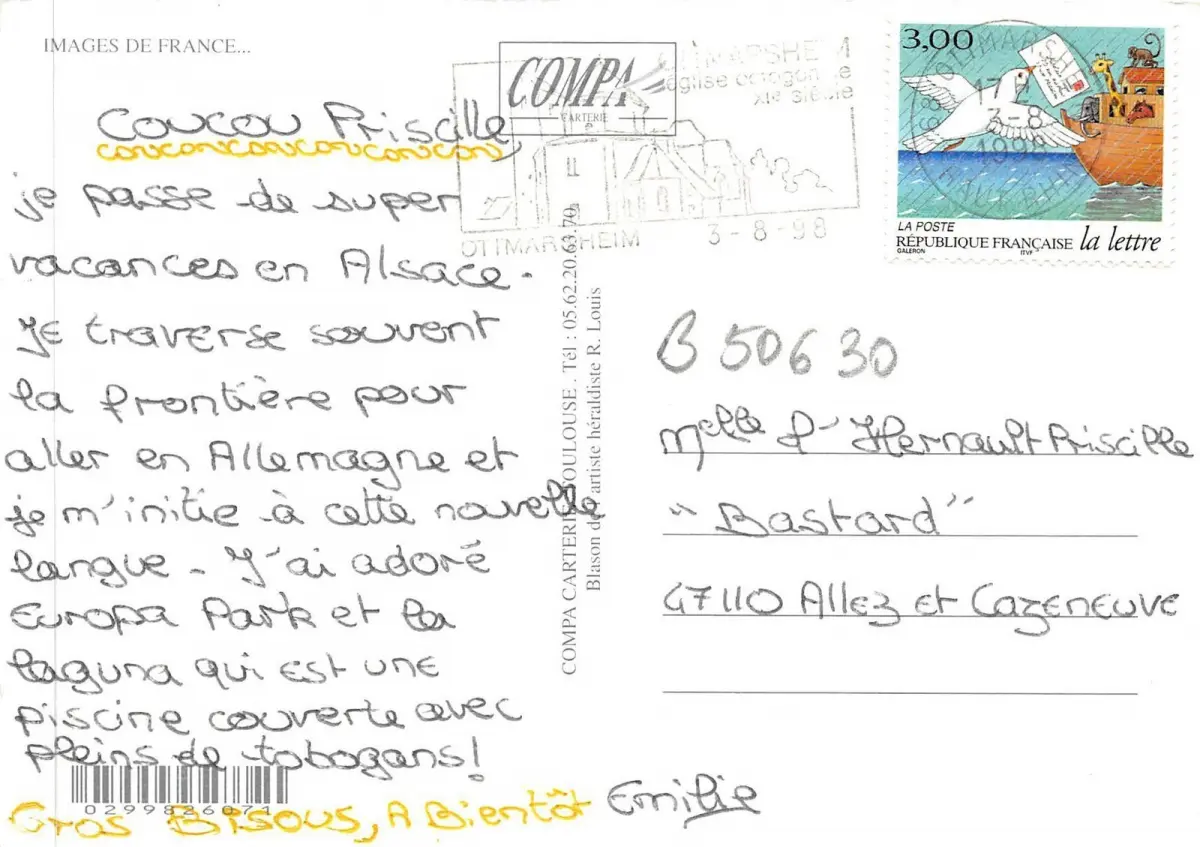 IMAGES DE FRANCE...
COMPA
CARTERIE
OTTMARSHEIM
église octogonale
XIe siècle
OTTMARSHEIM 3-8-98
3,00
17 H
3-8
1998
LA POSTE
RÉPUBLIQUE FRANÇAISE la lettre
GALERON ITVF
Coucou Priscille
coucoucoucoucoucoucoucou
je passe de super
vacances en Alsace.
Je traverse souvent
la frontière pour
aller en Allemagne et
je m'initie à cette nouvelle
langue - J'ai adoré
Europa Park et la
laguna qui est une
piscine couverte avec
pleins de tobogans!
Gros Bisous, A Bientôt Emilie
029982607
COMPA CARTERIE TOULOUSE. Tél : 05.62.20.63.70
Blason de l'artiste héraldiste R. Louis
B 50630
Melle l'Hernault Priscille
"Bastard"
47110 Allez et Cazeneuve